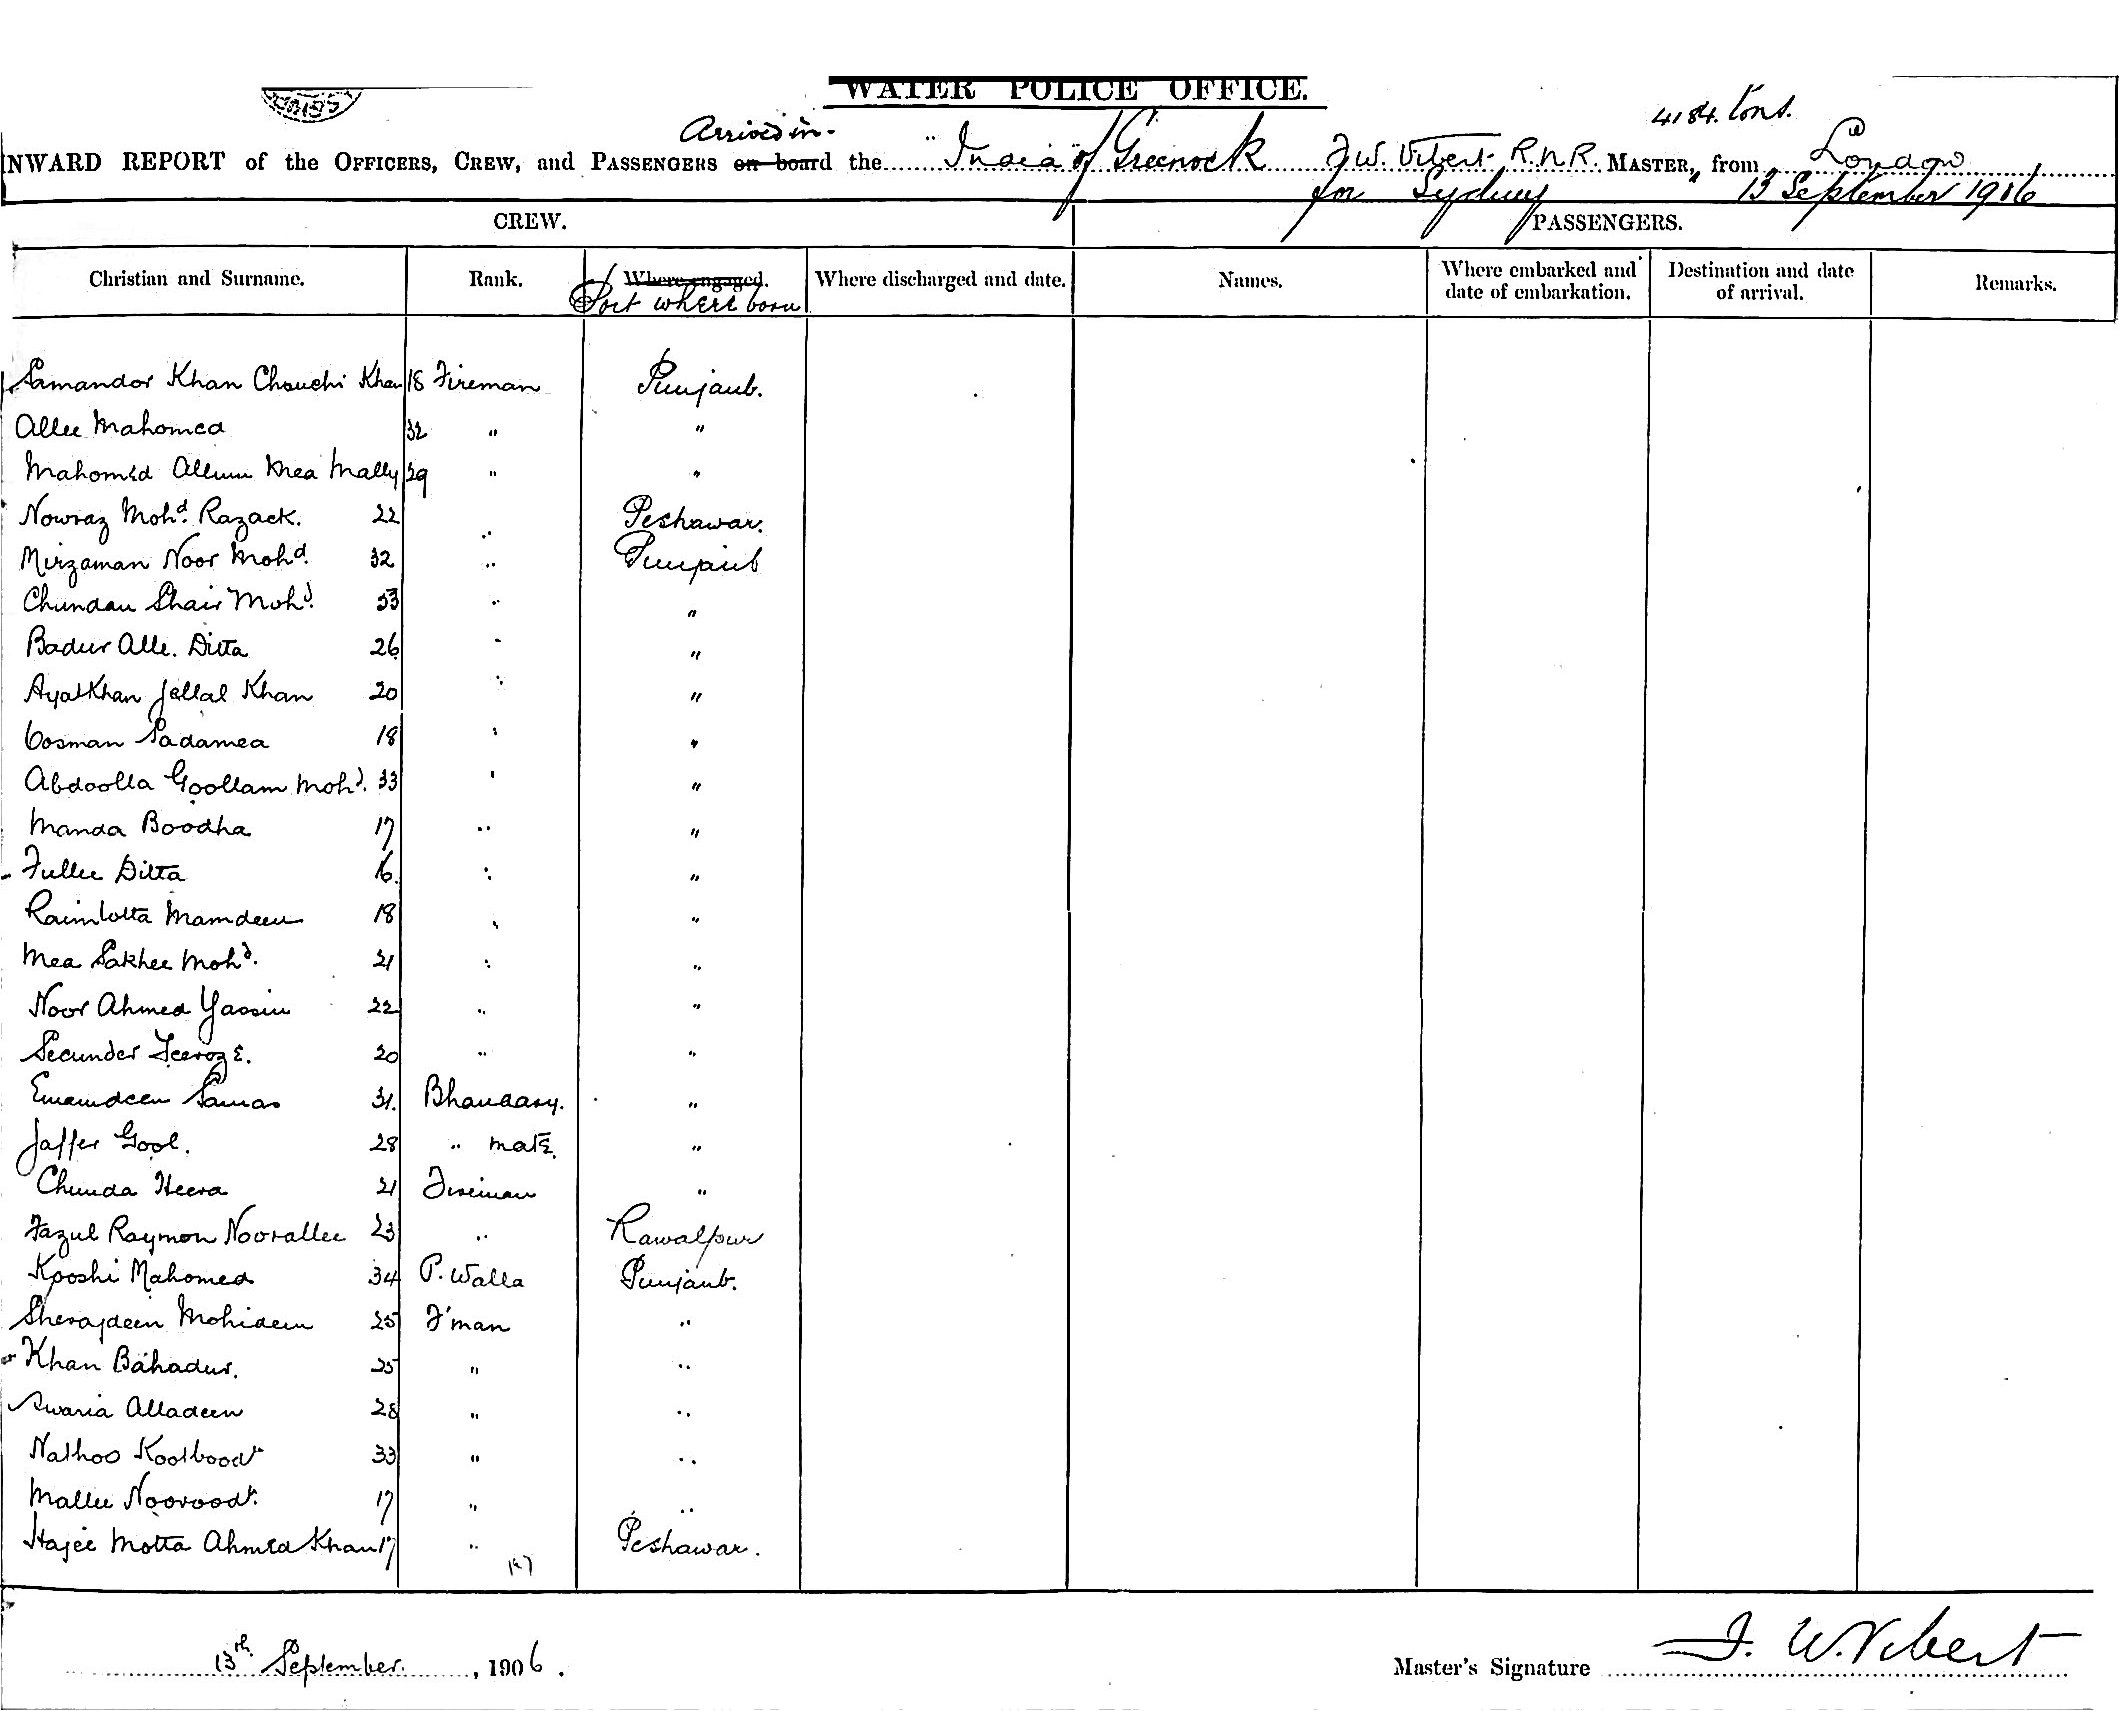 WATER POLICE OFFICE.
4184. Tons.
Arrived in
INWARD REPORT of the OFFICERS, CREW, and PASSENGERS on board the "India" of Greenock F.W. Vibert R.N.R. MASTER, from London
for Sydney 13 September 1906
CREW. PASSENGERS.
Christian and Surname. Rank. Where engaged. Where discharged and date. Names. Where embarked and date of embarkation. Destination and date of arrival. Remarks.
Port where born
Samandor Khan Chouchi Khan 18 Fireman Punjaub.
Allee Mahomed 32 " "
Mahomed Allum Mea Mally 29 " "
Nowraz Mohd. Razack. 22 " Peshawar.
Mirzaman Noor Mohd. 32 " Punjaub
Chundau Shair Mohd. 33 " "
Badur Alle. Ditta 26 " "
Ayat Khan Jellal Khan 20 " "
Oosman Sadamea 18 " "
Abdoolla Goollam Mohd. 33 " "
Manda Boodha 17 " "
Fullee Ditta 16. " "
Raimlotta Mamdeen 18 " "
Mea Sakhee Mohd. 21 " "
Noor Ahmed Yassin 22 " "
Secunder Feeroze. 20 " "
Emamdeen Samas 31. Bhandary. "
Jaffer Gool. 28 " mate. "
Chunda Heera 21 Fireman "
Fazul Raymon Noorallee 23 " Rawalpur
Kooshi Mahomed 34 P. Walla Punjaub.
Sherajdeen Mohideen 25 F'man "
Khan Bahadur. 25 " "
Swaria Alladeen 28 " "
Nathoo Kootboodn 33 " "
Mallee Nooroodn. 17 " "
Hajee Motta Ahmed Khan 17 " Peshawar.
13th September. , 1906.
Master's Signature F. W. Vibert